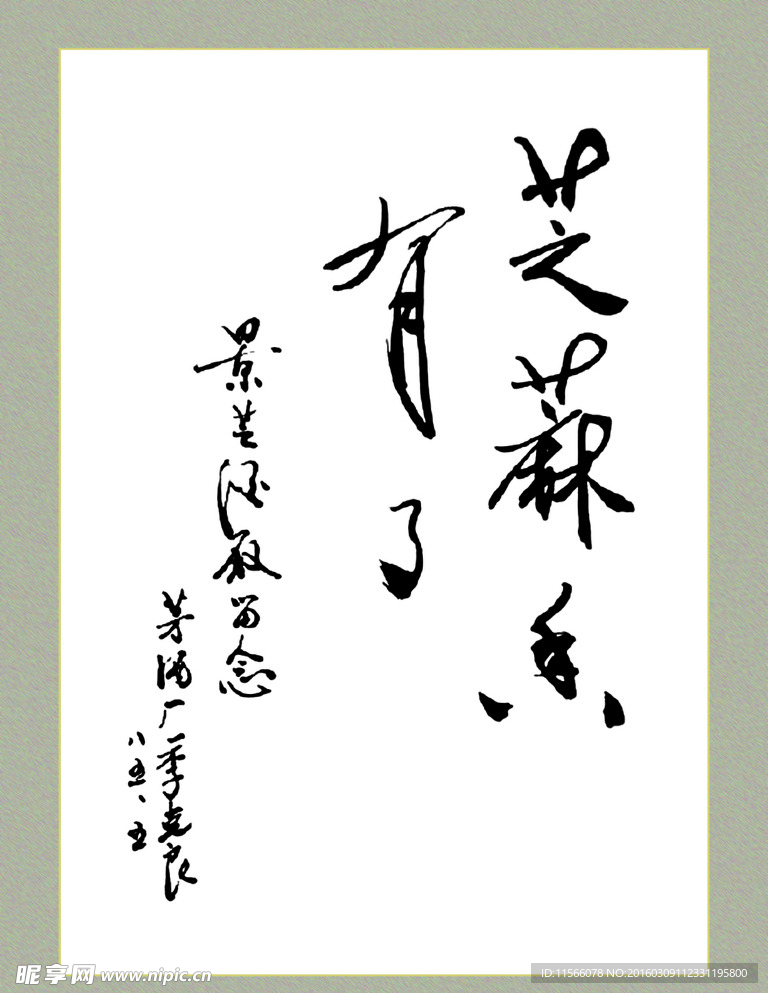 芝蔴香
有了
景芝酒厰留念
茅酒厂季克良
八五、五
昵享网 www.nipic.cn
ID:11566078 NO:20160309112331195800